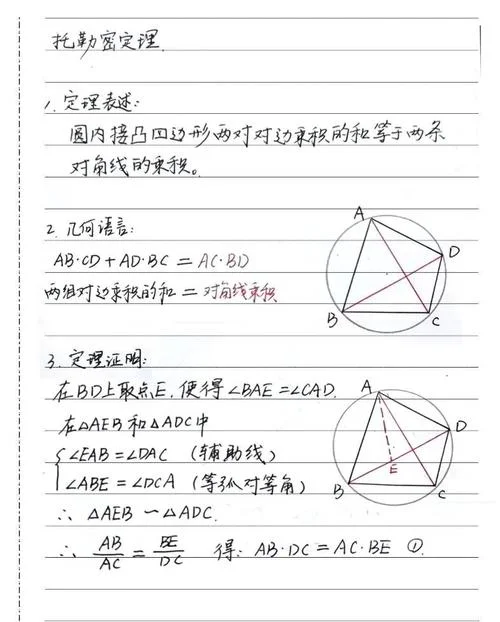 托勒密定理.
1. 定理表述:
圆内接凸四边形两对对边乘积的和等于两条
对角线的乘积。
2. 几何语言:
AB·CD+AD·BC=AC·BD
两组对边乘积的和=对角线乘积
A
D
B
C
3. 定理证明:
在BD上取点E,使得∠BAE=∠CAD.
在△AEB和△ADC中
∠EAB=∠DAC (辅助线)
∠ABE=∠DCA (等弧对等角)
∴ △AEB∽△ADC.
∴ AB/AC=BE/DC 得: AB·DC=AC·BE ①.
A
D
E
B
C